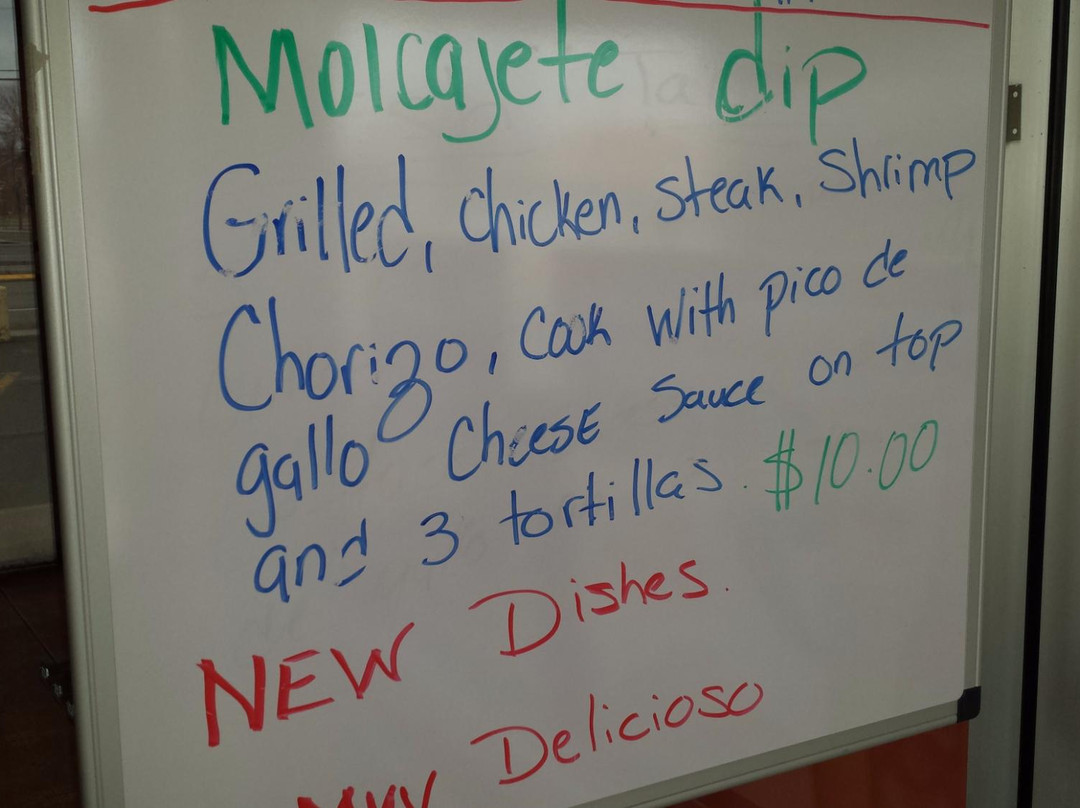 Molcajete dip
Grilled, chicken, steak, Shrimp
Chorizo, Cook with pico de
gallo Cheese Sauce on top
and 3 tortillas. $10.00
NEW Dishes.
Delicioso